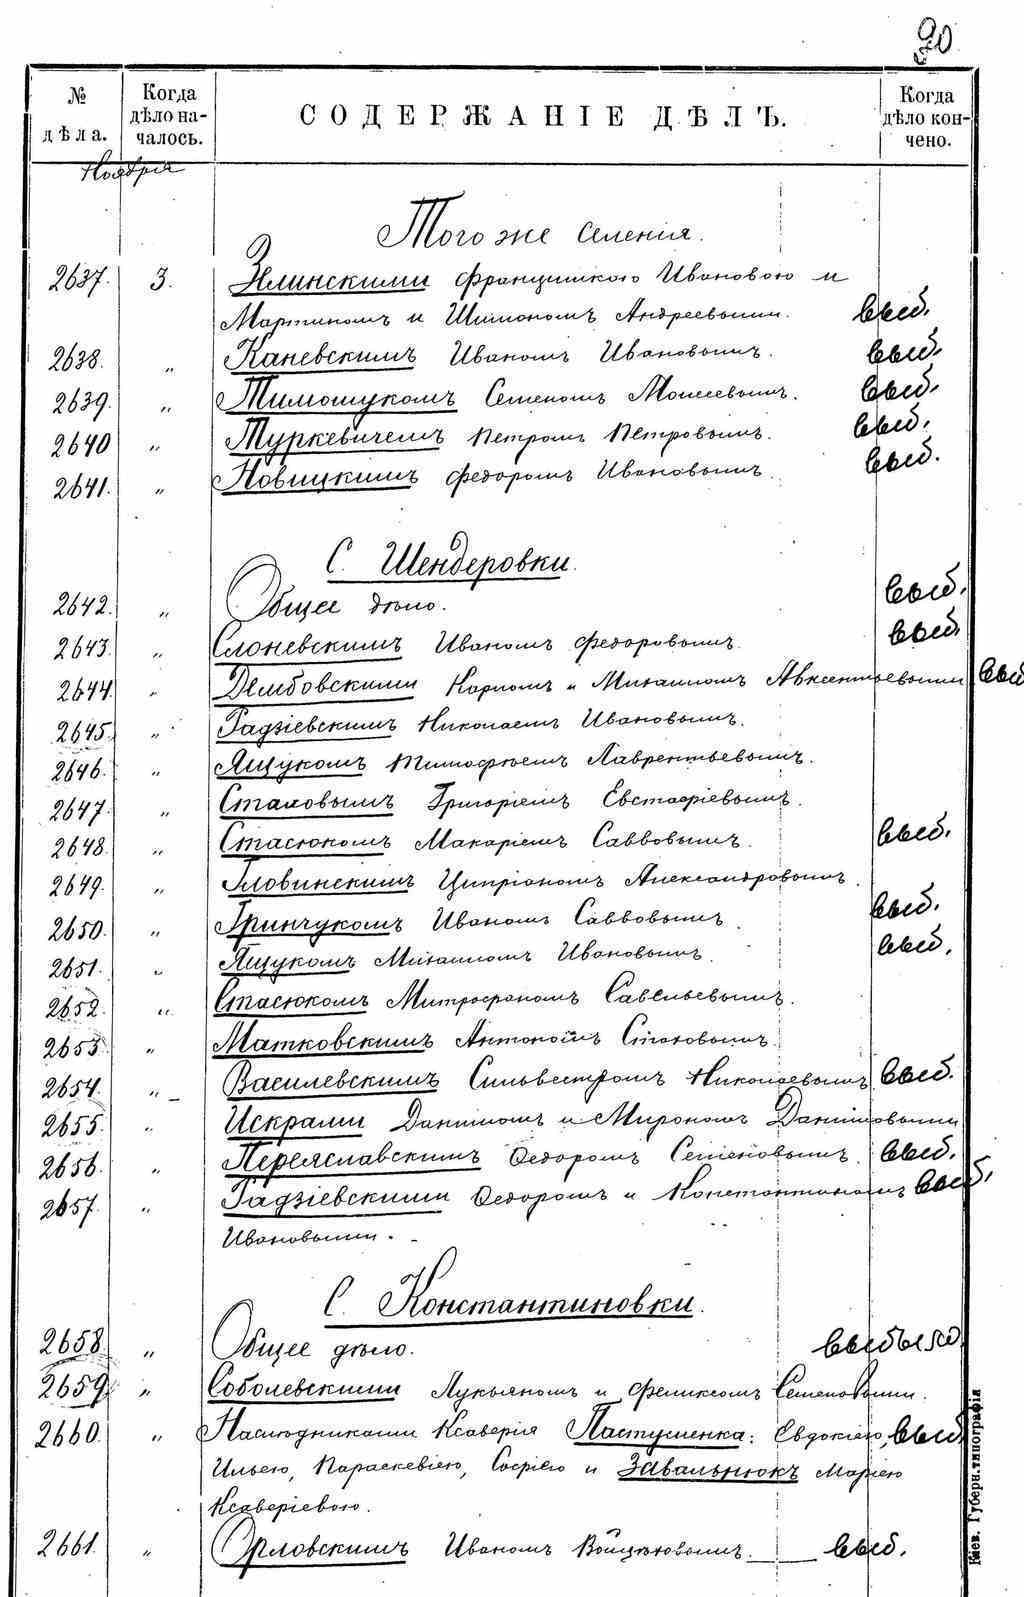 20
№ дѣла.
Когда дѣло началось.
СОДЕРЖАНІЕ ДѢЛЪ.
Когда дѣло кончено.
Ноября
Того же селенія.
2637. 3. Илинскими Францишкою Ивановою и
Мартиномъ и Шимономъ Андреевыми. выб.
2638. „ Каневскимъ Иваномъ Ивановымъ. выб.
2639. „ Тимошукомъ Семеномъ Моисеевымъ. выб.
2640 „ Туркевичемъ Петромъ Петровымъ. выб.
2641. „ Новицкимъ Федоромъ Ивановымъ. выб.
С. Шендеровки.
2642. „ Общее дѣло. выб.
2643. „ Слоневскимъ Иваномъ Федоровымъ. выб.
2644. „ Дембовскими Карпомъ и Михаиломъ Авксентьевыми выб
2645. „ Гадзіевскимъ Николаемъ Ивановымъ.
2646. „ Ящукомъ Тимофѣемъ Лаврентьевымъ.
2647. „ Стаховымъ Григоріемъ Евстафіевымъ.
2648. „ Стасюкомъ Макаріемъ Саввовымъ. выб.
2649. „ ГловинскимъЦипріаномъ Александровымъ.
2650. „ Гринчукомъ Иваномъ Саввовымъ. выб.
2651. „ Ящукомъ Михаиломъ Ивановымъ. выб.
2652. „ Стасюкомъ Митрофаномъ Савельевымъ.
2653 „ Матковскимъ Антономъ
2654. „ Василевскимъ Сильвестромъ Николаевымъ выб.
2655. „ Искрами Даниломъ и Мирономъ Даниловыми
2656. „ Переяславскимъ Ѳедоромъ Семеновымъ. выб.
2657. „ Гадзіевскими Ѳедоромъ и Константиномъ выб.
Ивановыми.
С. Константиновки.
2658. „ Общее дѣло. выбыло.
2659. „ Соболевскими Лукьяномъ и Феликсомъ Семеновыми.
2660. „ Наслѣдниками Ксаверія Пастушенка: Евдокіею, выб
Ильею, Параскевіею, Софіею и Завальнюкъ Маріею
Ксаверіевою.
2661. „ Орловскимъ Иваномъ Войцѣховымъ. выб.
Кіев. Губерн. типографія